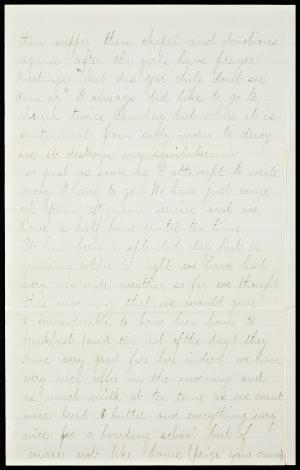 then supper then chapel and devotions
again after the girls have prayer
meetings "but dis yar chile don't see
dem ar" I always did like to go to
church twice Sunday but where it is
continual from early morn to dewy
eve it destroys my equilibrium
so just as soon as I attempt to write
away I have to go. We have just come
up from afternoon service and we
have a half hour until tea time
It has been a splendid day but is
growing colder to night we have had
very moderate weather so far we thought
this morning that we would give
a considerable to have been home to
breakfast (and the rest of the day) they
have very good fare here indeed we have
very nice coffee in the morning and
as much milk at tea time as we want
nice bread & butter and everything very
nice for a boarding school but of
course not like home (prize your cream)